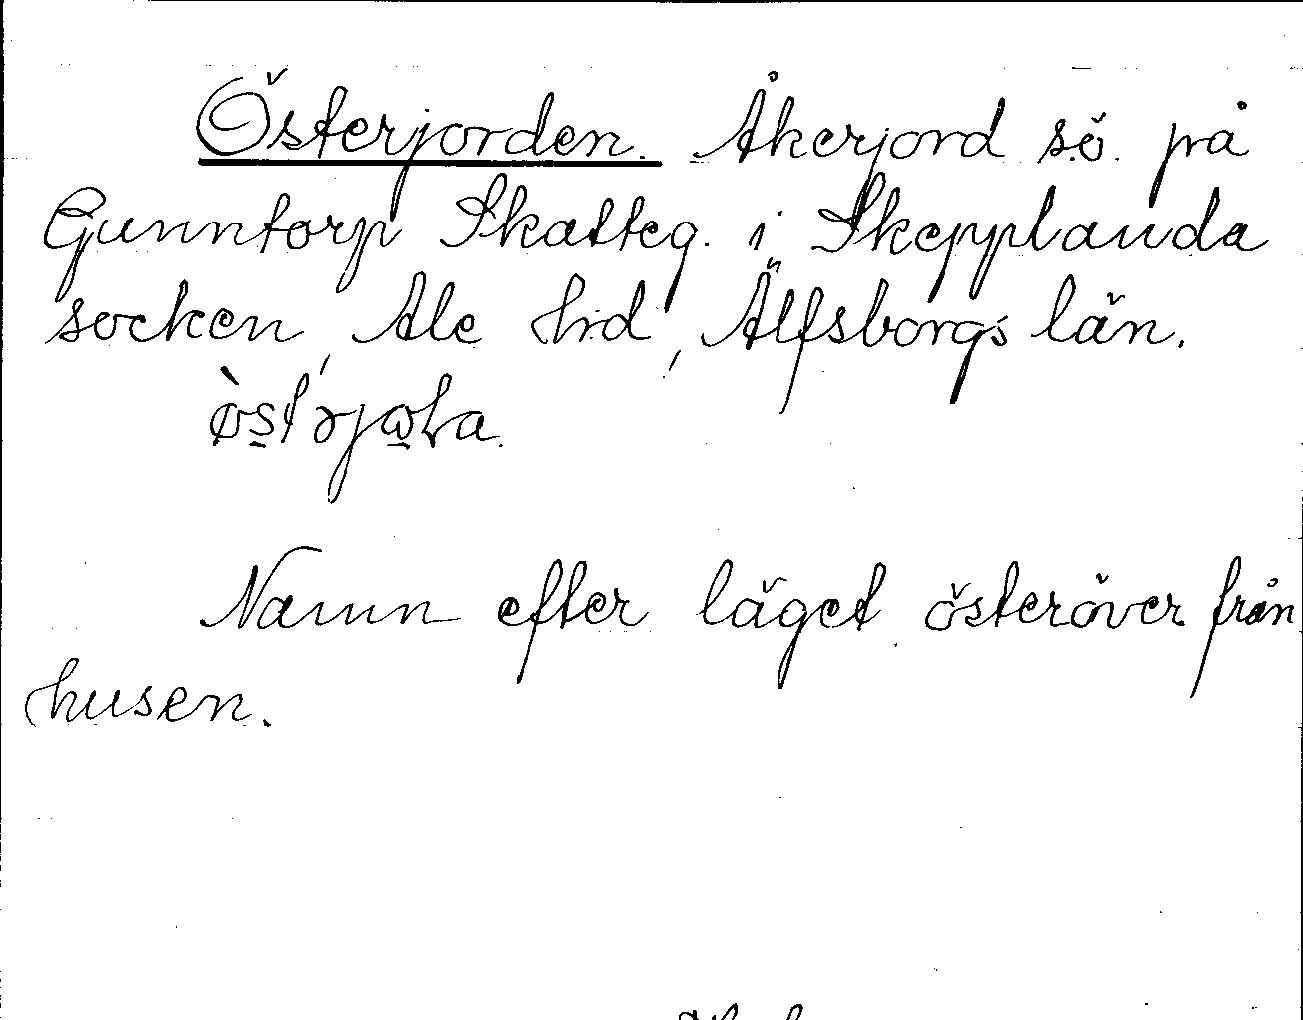 Österjorden. Åkerjord sö. på
Gunntorp Skatteg. i Skepplanda
socken, Ale hrd, Älfsborgs län.
Namn efter läget österöver från
husen.